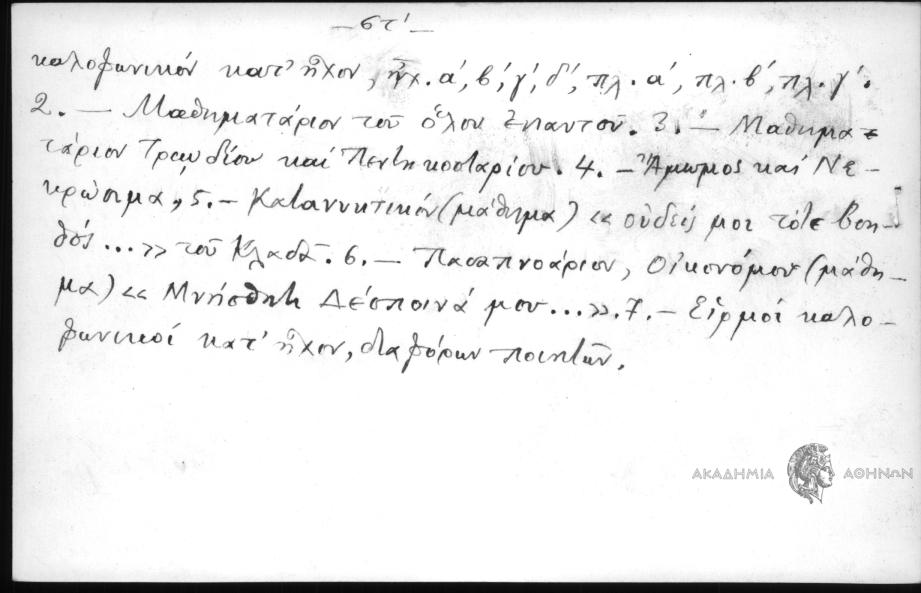 — στ' —
καλοφωνικόν κατ' ἦχον, ἤχ. α', β', γ', δ', πλ. α', πλ. β', πλ. γ'.
2. — Μαθηματάριον τοῦ ὅλου ἐνιαυτοῦ. 3. — Μαθημα-
τάριον Τριῳδίου καί Πεντηκοσταρίου. 4. — Ἄμωμος καί Νε-
κρώσιμα, 5. — Κατανυκτικόν (μάθημα) «οὐδείς μοι τότε βοη-
θός...» τοῦ Κλαδᾶ. 6. — Πασαπνοάριον, Οἰκονόμου (μάθη-
μα) «Μνήσθητι Δέσποινά μου...». 7. — Εἱρμοί καλο-
φωνικοί κατ' ἦχον, διαφόρων ποιητῶν.
ΑΚΑΔΗΜΙΑ ΑΘΗΝΩΝ